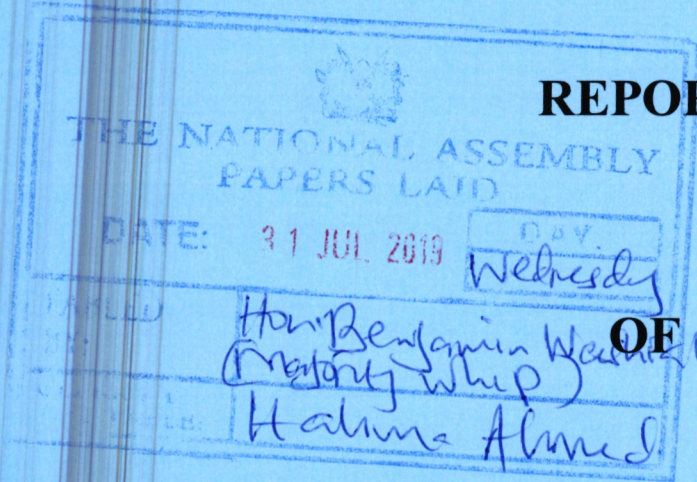 REPO
THE NATIONAL ASSEMBLY
PAPERS LAID
DATE: 31 JUL 2019
DAY.
Wednesday
TABLED
BY:
Hon. Benjamin
OF
(Majority Whip)
Halima Ahmed